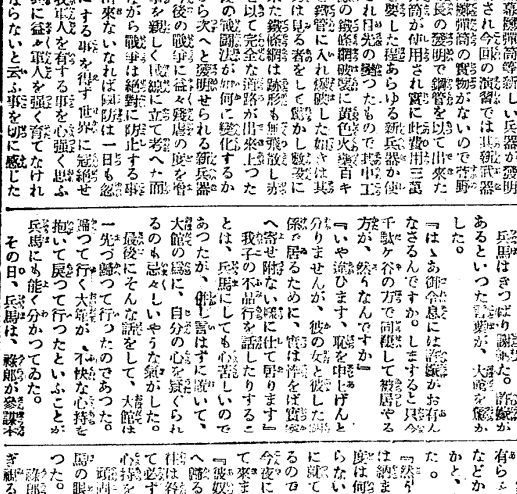 彈筒等新しい兵器が發明
され今回の演習では其新武器
彈筒の實物がないので菅野
長の發明で鋼管を以て出來た
筒が使用され實に此費用三萬
要した程あらゆる新兵器が使
れ日先の變つたもので此中工
の鐵條網破壞に黃色火藥百キ
鐵管に入れ爆破した如きは其
は見る者をして驚かし數段に
た鐵條網は跡形も無飛散し亦
と以て完全な通路が出來上つた
の戰鬪法が如何に變化するか
ら次へと發明せられる新兵器
後の戰爭に益々殘虐の度を增
事を親しく立て考へた而
がら戰爭は絕對に防止する事
出來ないなれば國防は一日も忽
にする事を得ず世界に冠絕せ
我軍人を有する事を心强く思ふ
に益々軍人を强く育てなけれ
ならないと云ふ事を切に感じた
兵馬はきつぱり謝絕した。許嫁が
あるといつた言葉が、大館を驚か
した。
『はゝあ御令息には許嫁がお有ん
なさるんですか。しますると只今
千駄ケ谷の方で同棲して被居やる
方が、然うなんですか』
『いや違ひます、恥を申上げんと
分りませんが、彼の女と彼した關
係で居るために、實は許をば實家
へ寄せ附けない樣に仕て居ります』
我子の不品行を話したりするこ
とは、兵馬にしても心苦しいので
あつたが、併し言はずに置いて、
大館の爲に、自分の心を疑ぐられ
るのも忌々しいやうな氣がした。
最後にそんな話をして、大館は
一先づ歸つて行つたのであつた。
歸つて行く大館が、不快な心持を
抱いて戾つて行つたといふことが
兵馬にも能く分かつてゐた。
その日、兵馬は、祿郞が參謀本
有ら
などか
かと、
た。
『然
は納ま
度は何
らない
に就て
るので
今夜に
て來ま
『彼奴
へ歸る
往は谷
て必ず
心持を
頭
馬の眼
つた。
祿郞
ぎ視る